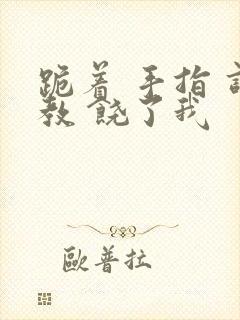 跪着 手指 調
教 饶了我
歐普拉